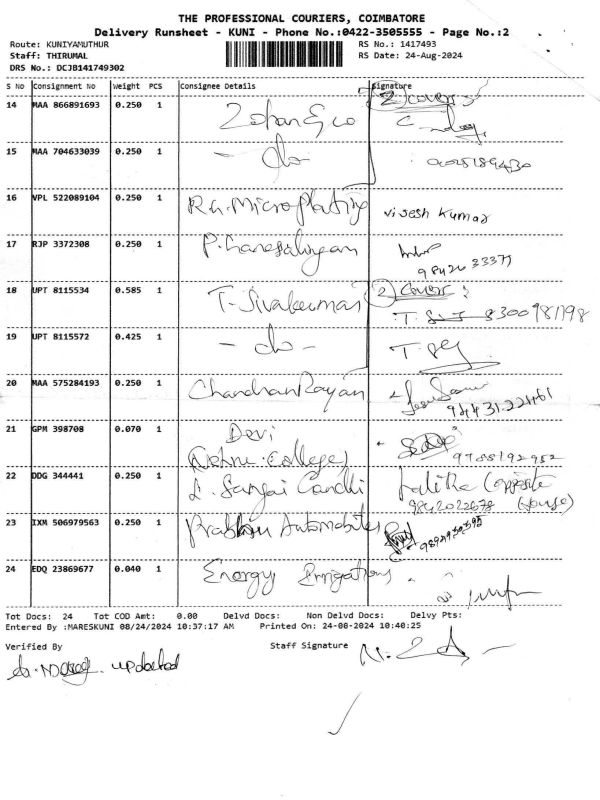 THE PROFESSIONAL COURIERS, COIMBATORE
Delivery Runsheet - KUNI - Phone No.:0422-3505555 - Page No.:2
Route: KUNIYAMUTHUR RS No.: 1417493
Staff: THIRUMAL RS Date: 24-Aug-2024
DRS No.: DCJB141749302
S No Consignment No Weight PCS Consignee Details Signature
14 MAA 866891693 0.250 1 2 covers
15 MAA 704633039 0.250 1 - do -
16 VPL 522089104 0.250 1 R.G. Micro Plating Vijesh Kumar
17 RJP 3372308 0.250 1
18 UPT 8115534 0.585 1 T. Sivakumar 2 Covers
8300981198
19 UPT 8115572 0.425 1 - do -
20 MAA 575284193 0.250 1 Chandran Rayan
21 GPM 398708 0.070 1 Devi
(Nehru College) 9788192952
22 DDG 344441 0.250 1 Sanjai Gandhi Lalitha Opposite
9842022678 (House)
23 IXM 506979563 0.250 1 Prabhu Automobiles
24 EDQ 23869677 0.040 1 Energy Irrigations
Tot Docs: 24 Tot COD Amt: 0.00 Delvd Docs: Non Delvd Docs: Delvy Pts:
Entered By :MARESKUNI 08/24/2024 10:37:17 AM Printed On: 24-08-2024 10:40:25
Verified By Staff Signature
updated